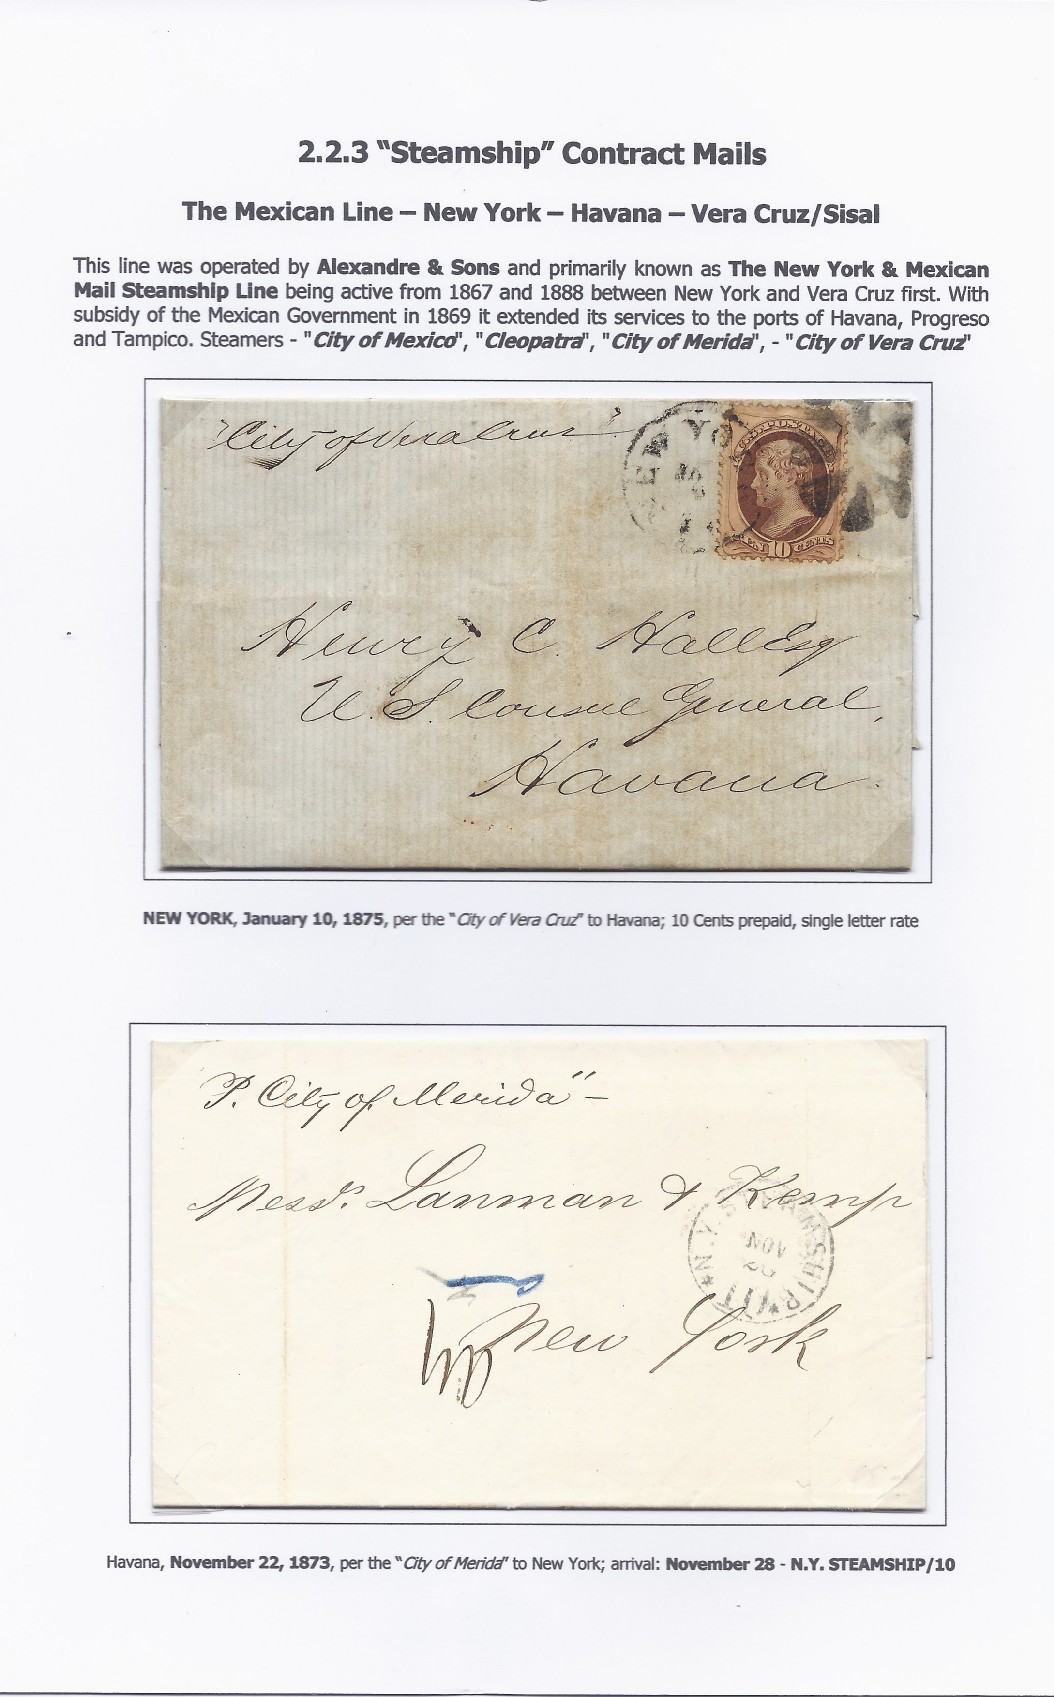 2.2.3 "Steamship" Contract Mails
The Mexican Line – New York – Havana – Vera Cruz/Sisal
This line was operated by Alexandre & Sons and primarily known as The New York & Mexican
Mail Steamship Line being active from 1867 and 1888 between New York and Vera Cruz first. With
subsidy of the Mexican Government in 1869 it extended its services to the ports of Havana, Progreso
and Tampico. Steamers - "City of Mexico", "Cleopatra", "City of Merida", - "City of Vera Cruz"
"City of Vera Cruz"
NEW YO
U.S. POSTAGE
TEN 10 CENTS
Henry C. Hall Esq
U. S. Consul General,
Havana.
NEW YORK, January 10, 1875, per the "City of Vera Cruz" to Havana; 10 Cents prepaid, single letter rate
P. City of Merida" –
Messrs. Lanman & Kemp
N.Y. STEAMSHIP
NOV
New York
Havana, November 22, 1873, per the "City of Merida" to New York; arrival: November 28 - N.Y. STEAMSHIP/10